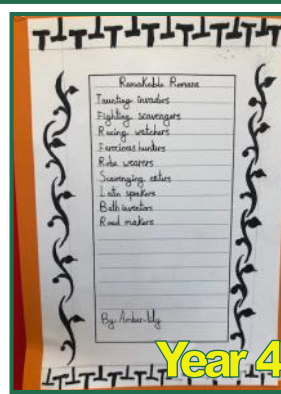 Remakable Romans
Taunting invadies
Fighting scavengers
Racing watchers
Ferocious hunters
Robe wearers
Scavenging eaters
Latin speakers
Bath inventors
Road makers
By Amber-lily
Year 4